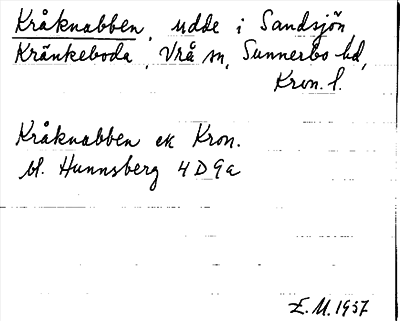 Kråknabben, udde i Sandsjön,
Kränkeboda, Vrå sn, Sunnerbo hd,
Kron. l.
Kråknabben ek Kron.
bl. Hunnsberg 4D9a
E.M. 1957